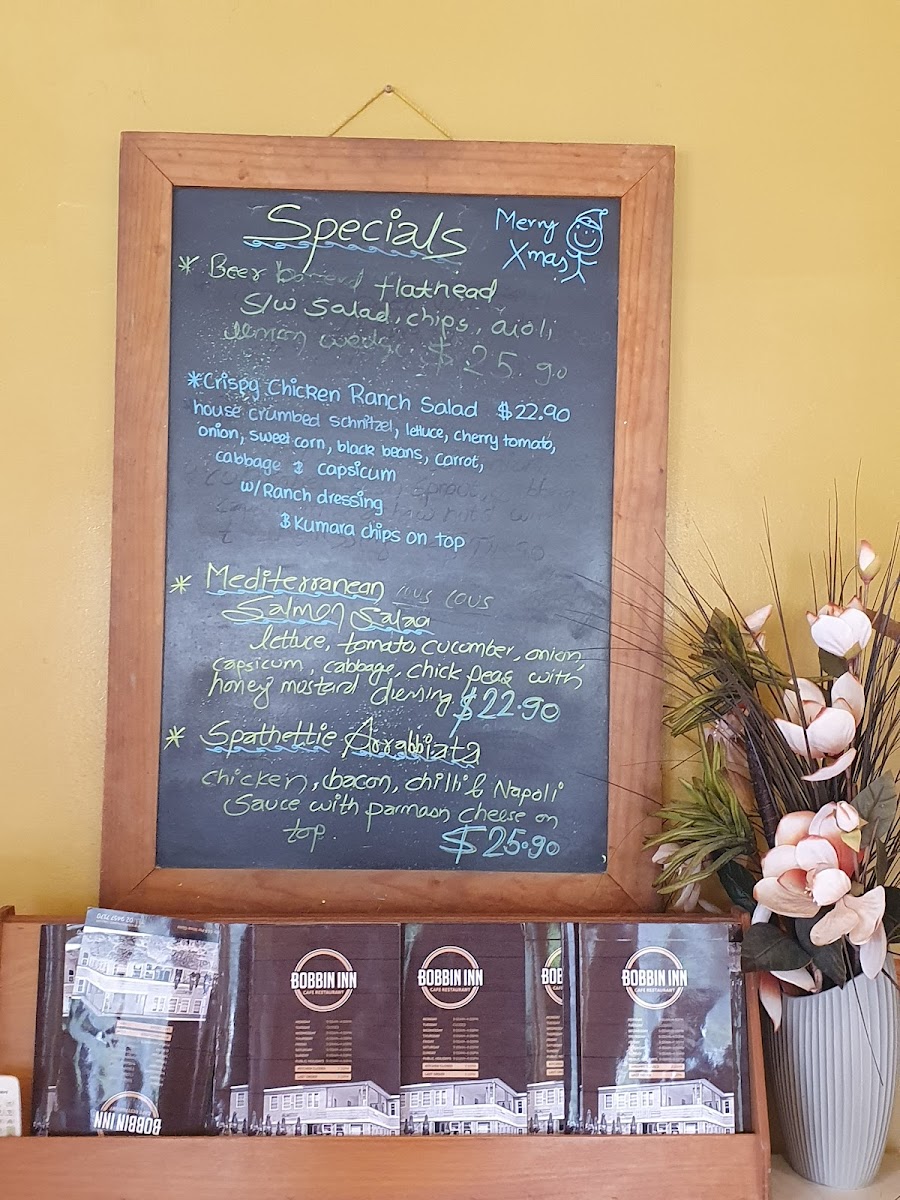 Specials
Merry
Xmas
* Beer flathead
S/w Salad, chips, aioli
lemon wedge $25.90
*Crispy Chicken Ranch Salad $22.90
house crumbed schnitzel, lettuce, cherry tomato,
onion, sweet corn, black beans, carrot,
cabbage & capsicum
w/Ranch dressing
& Kumara chips on top
* Mediterranean cous cous
Salmon Salad
lettuce, tomato, cucomber, onion,
capsicum, cabbage, chick peas with
honey mustard dressing $22.90
* Spathettie Arrabbiata
chicken, bacon, chilli & Napoli
Sauce with parmasn cheese on
top. $25.90
BOBBIN INN
CAFE RESTAURANT
BOBBIN INN
CAFE RESTAURANT
BOBBIN INN
CAFE RESTAURANT
BOBBIN INN
CAFE RESTAURANT